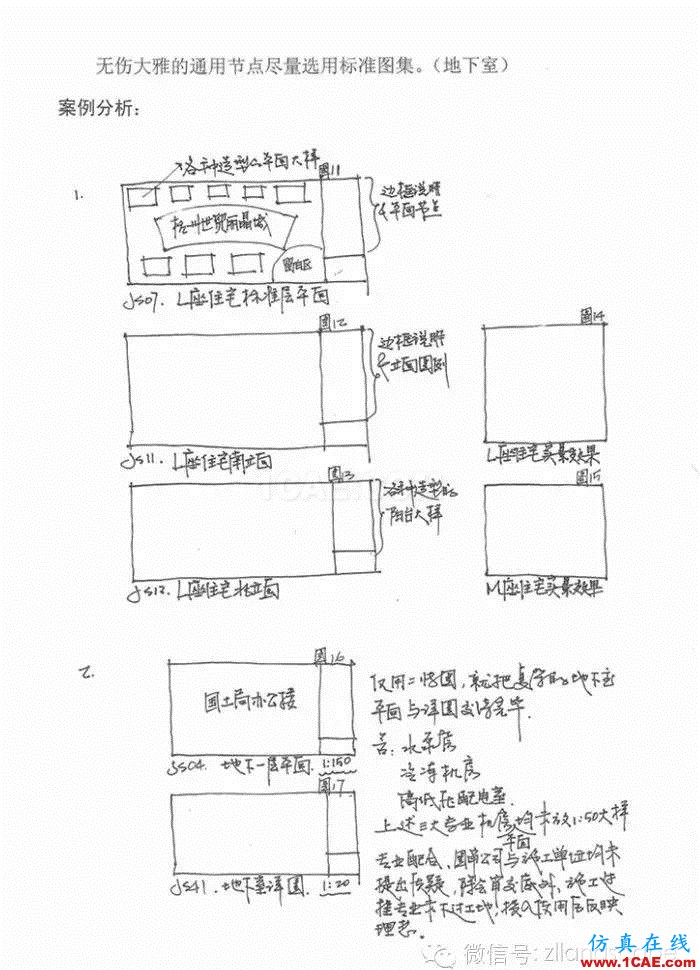 无伤大雅的通用节点尽量选用标准图集。（地下室）
案例分析：
各种造型的平面大样
1.
图11
梧州世贸丽晶城
留白区
边框说明
&平面节点
JS07. L座住宅标准层平面
图12
边框说明
&立面图例
JS11. L座住宅南立面
图14
L座住宅实景效果
图13
各种造型的
阳台大样
JS12. L座住宅北立面
图15
M座住宅实景效果
2.
图16
国土局办公楼
JS04. 地下一层平面. 1:150
图17
JS41. 地下室详图. 1:20
仅用二张图，就把复杂的地下室
平面与详图交待完毕.
若：水泵房
冷冻机房
高低压配电室.
上述三大专业机房均未放1:50大样
平面
专业配合，图审公司与施工单位均未
提出质疑，除会审交底外，施工过
程专业未下过工地；接收使用后反映
理想。
微信号: zlland
1CAE.COM
仿真在线
www.1CAE.com